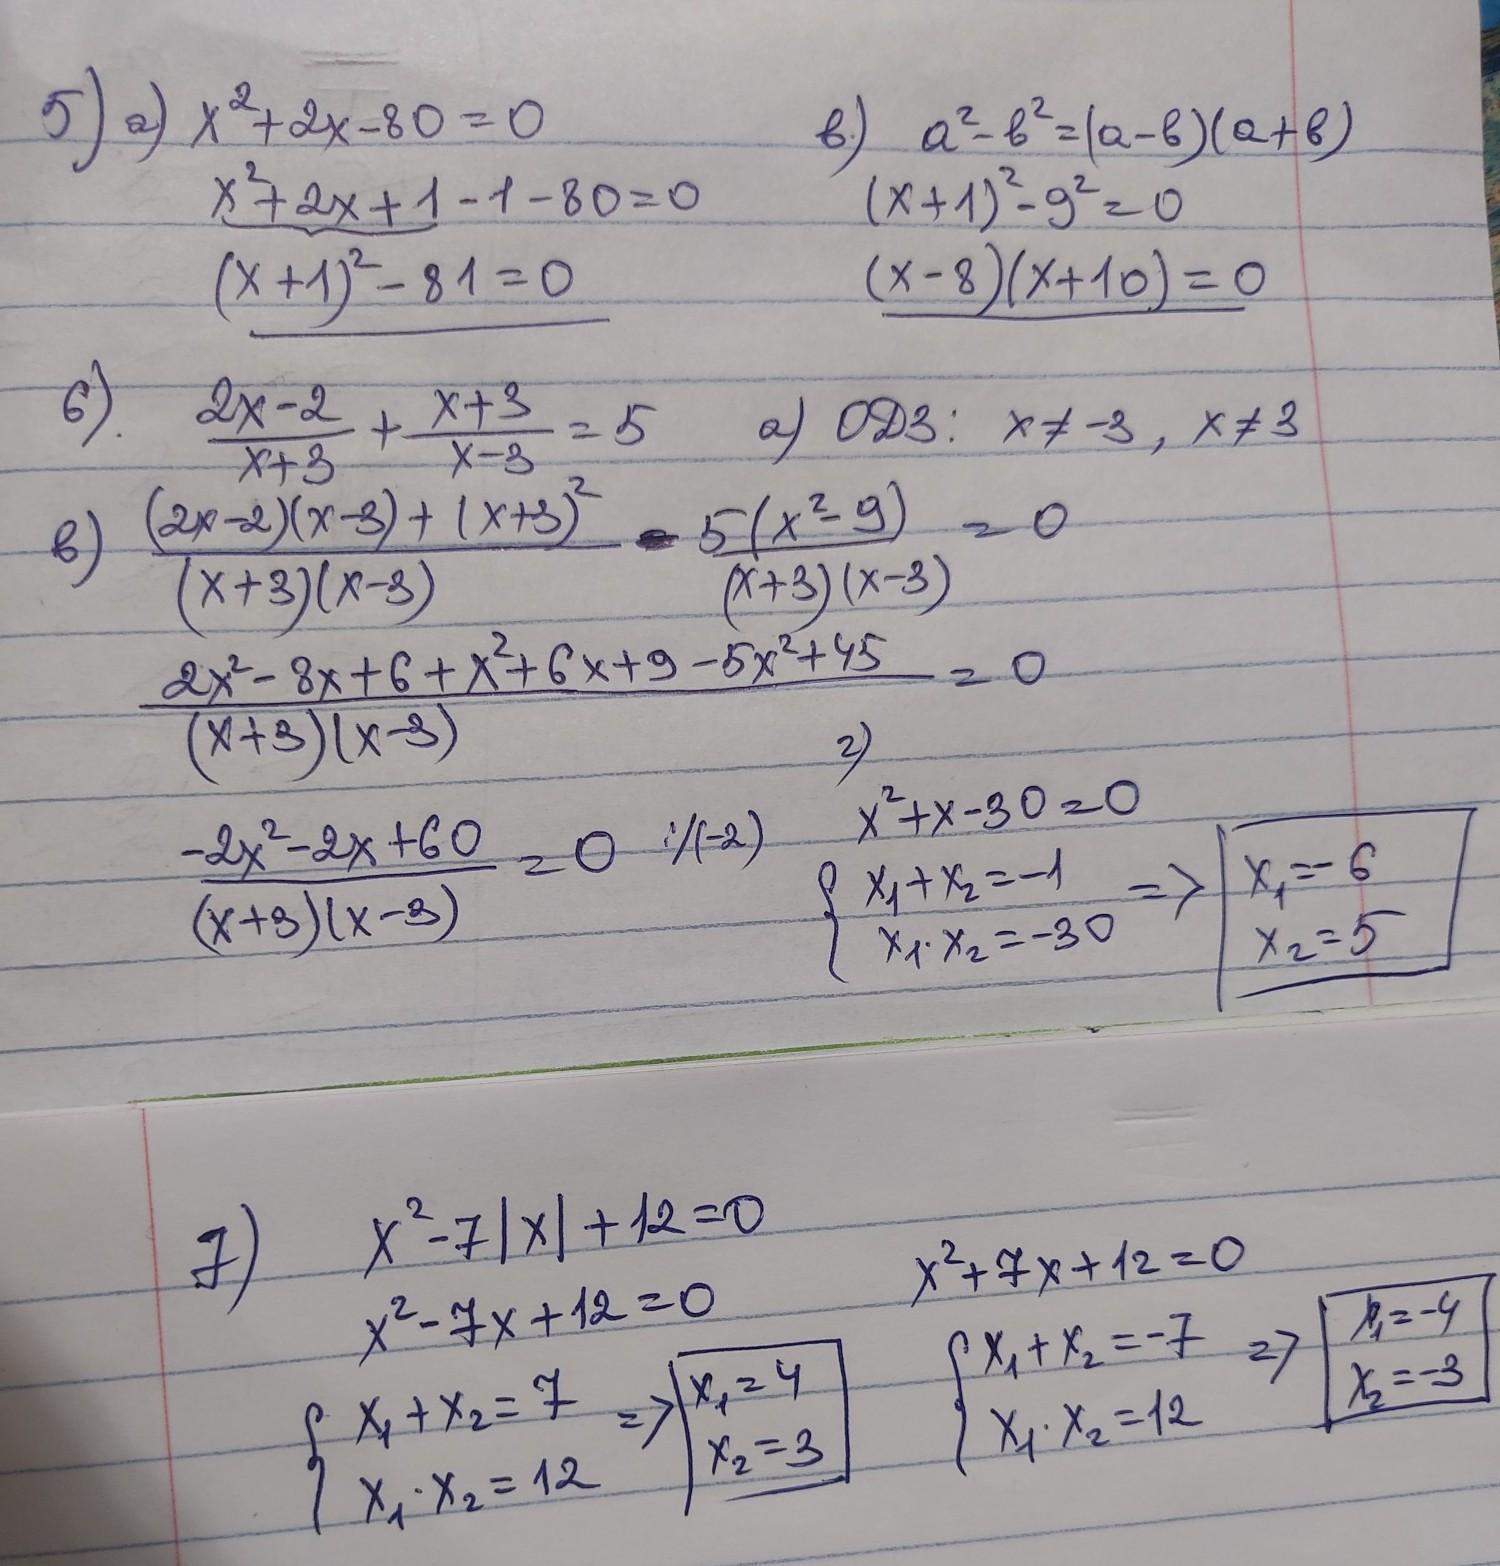 5) а) x²+2x-80=0
x²+2x+1-1-80=0
(x+1)²-81=0
в) a²-в²=(a-в)(a+в)
(x+1)²-9²=0
(x-8)(x+10)=0
6). (2x-2)/(x+3) + (x+3)/(x-3) = 5 а) ОДЗ: x≠-3, x≠3
в) ((2x-2)(x-3)+(x+3)²)/((x+3)(x-3)) - 5(x²-9)/((x+3)(x-3)) = 0
(2x²-8x+6+x²+6x+9-5x²+45)/((x+3)(x-3)) = 0
(-2x²-2x+60)/((x+3)(x-3)) = 0 :/(-2)
г)
x²+x-30=0
{ x₁+x₂=-1 => x₁=-6
x₁·x₂=-30 x₂=5
7) x²-7|x|+12=0
x²-7x+12=0
{ x₁+x₂=7 => x₁=4
x₁·x₂=12 x₂=3
x²+7x+12=0
{ x₁+x₂=-7 => x₁=-4
x₁·x₂=12 x₂=-3